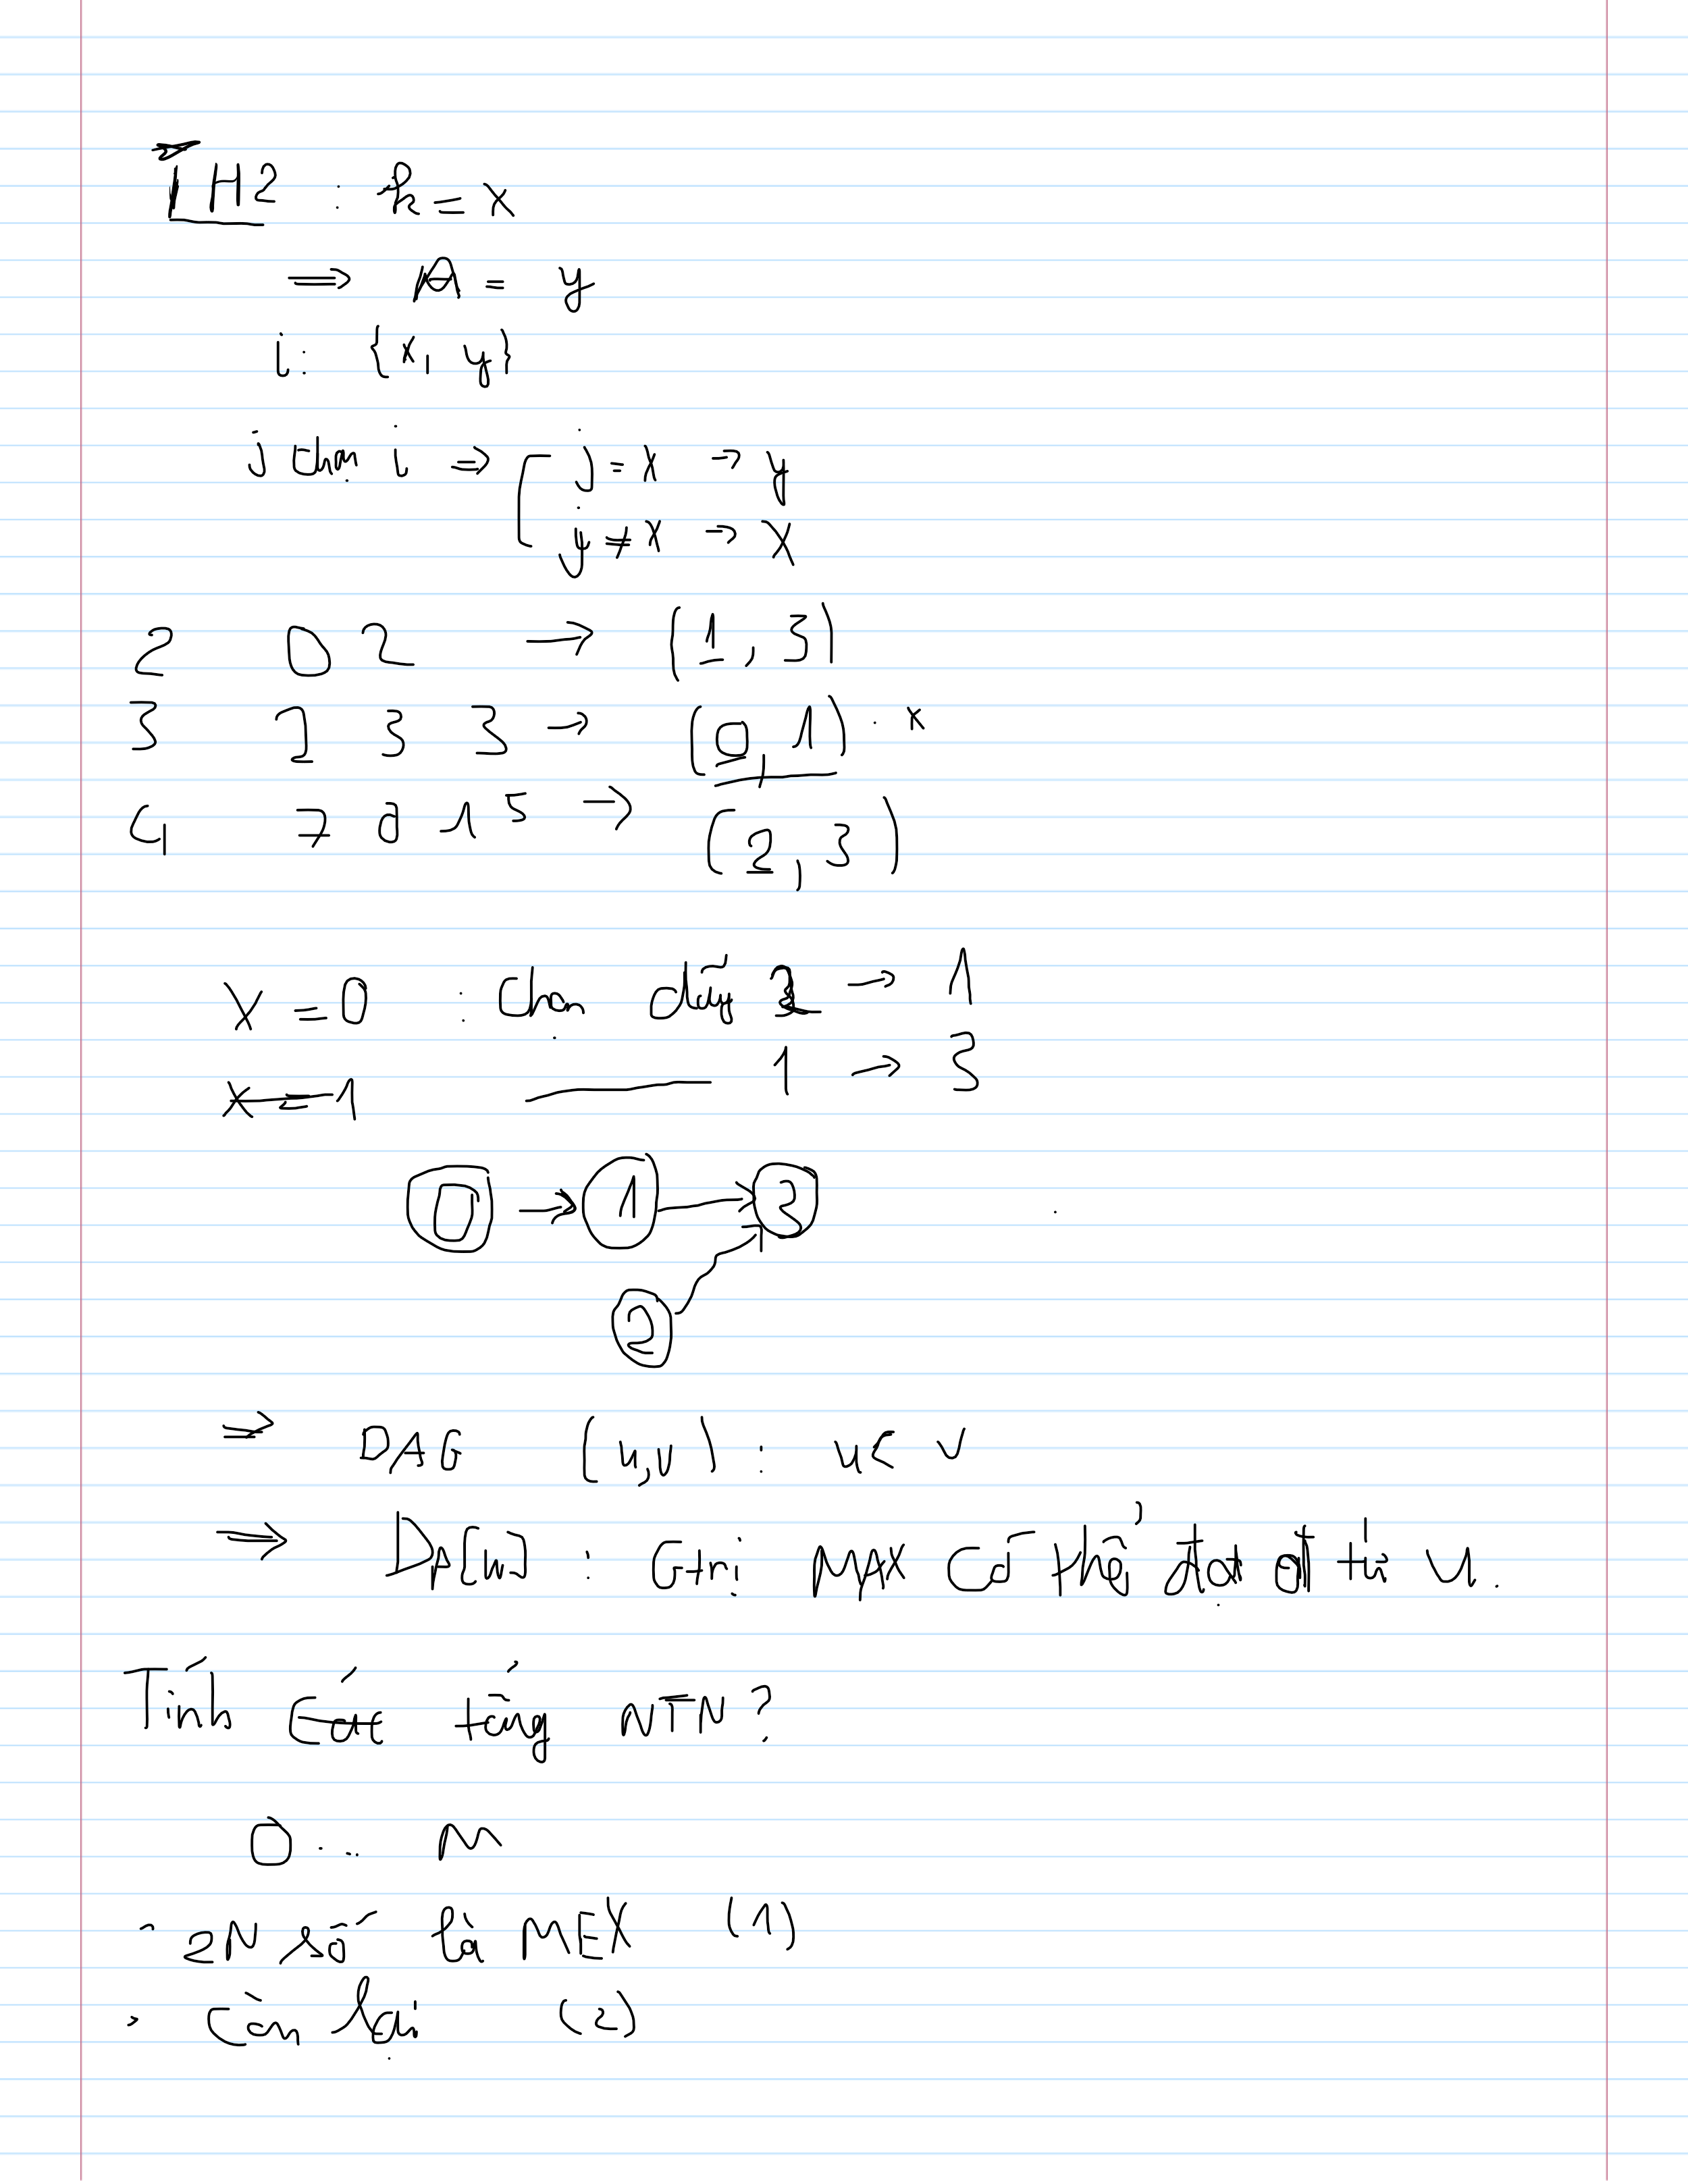 TH2 : k = x
⇒ A = y
i: {x, y}
j chọn i ⇒ [ j = x → y
j ≠ x → x
2 0 2 → (1, 3)
3 2 3 3 → (0, 1) . x
4 7 0 1 5 → (2, 3)
x = 0 : Chọn dãy 2 → 1
x = 1 ——— 1 → 3
0 → 1 → 3
2
⇒ DAG (u,v) : u < v
⇒ Dp[u] : Gtrị MAX có thể đạt đi từ u.
Tính các tổng NTN?
0 ... M
- 2N số là MEX (1)
- Còn lại (2)